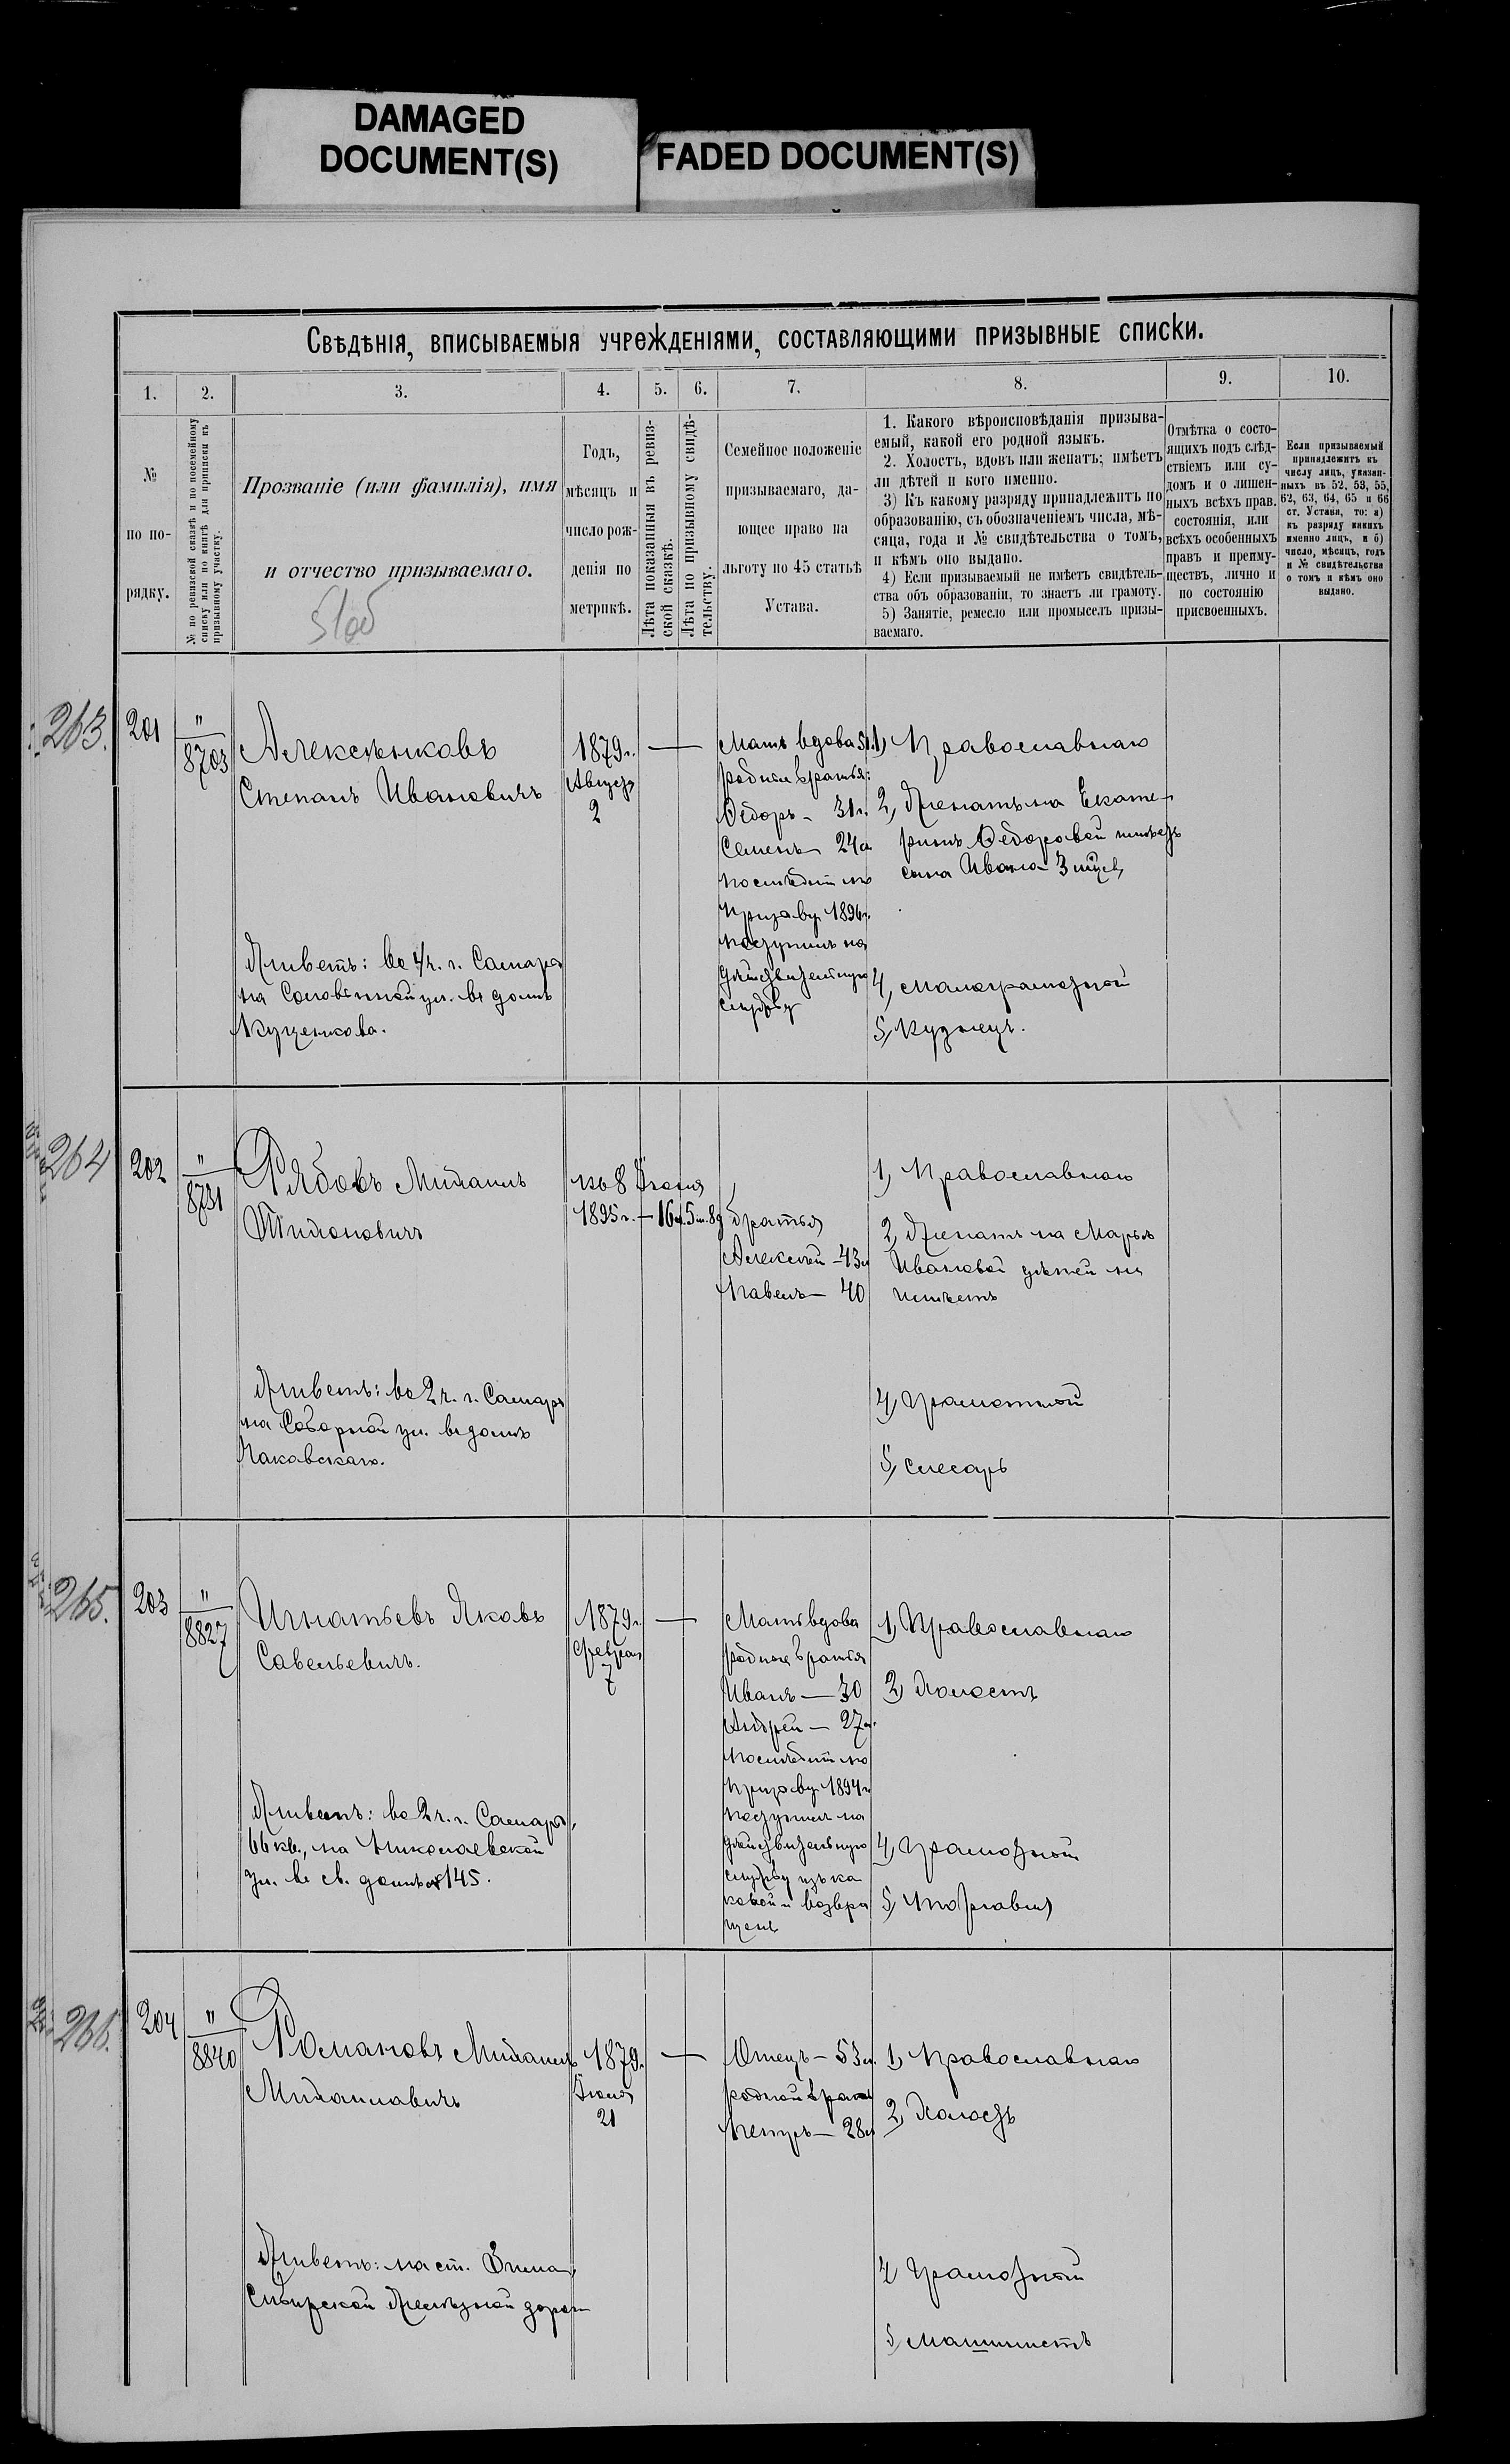 DAMAGED
DOCUMENT(S)
FADED DOCUMENT(S)
Свѣдѣнія, вписываемыя учрежденіями, составляющими призывные списки.
1.
2.
3.
4.
5.
6.
7.
8.
9.
10.
№
по по-
рядку.
№ по ревизской сказкѣ и по посемейному
списку или по книгѣ для приписки къ
призывному участку.
Прозваніе (или фамилія), имя
и отчество призываемаго.
Годъ,
мѣсяцъ и
число рож-
денія по
метрикѣ.
Лѣта показанныя въ ревиз-
ской сказкѣ.
Лѣта по призывному свидѣ-
тельству.
Семейное положеніе
призываемаго, да-
ющее право на
льготу по 45 статьѣ
Устава.
1. Какого вѣроисповѣданія призыва-
емый, какой его родной языкъ.
2. Холостъ, вдовъ или женатъ; имѣетъ
ли дѣтей и кого именно.
3) Къ какому разряду принадлежитъ по
образованію, съ обозначеніемъ числа, мѣ-
сяца, года и № свидѣтельства о томъ,
и кѣмъ оно выдано.
4) Если призываемый не имѣетъ свидѣтель-
ства объ образованіи, то знаетъ ли грамоту.
5) Занятіе, ремесло или промыселъ призы-
ваемаго.
Отмѣтка о состо-
ящихъ подъ слѣд-
ствіемъ или су-
домъ и о лишен-
ныхъ всѣхъ прав.
состоянія, или
всѣхъ особенныхъ
правъ и преиму-
ществъ, лично и
по состоянію
присвоенныхъ.
Если призываемый
принадлежитъ къ
числу лицъ, указан-
ныхъ въ 52, 53, 55,
62, 63, 64, 65 и 66
ст. Устава, то: а)
къ разряду какихъ
именно лицъ, и б)
число, мѣсяцъ, годъ
и № свидѣтельства
о томъ и кѣмъ оно
выдано.
263.
201
"
8703
Алексѣнковъ
Степанъ Ивановичъ
Живетъ: во 4 ч. г. Самары
на Соловьиной ул. въ домѣ
Куценкова.
1879 г.
Августа
2
—
Мать вдова 51 л.
родные братья:
Ѳедоръ - 31 г.
Семенъ 24 а
послѣдній по
призыву 1896 г.
поступилъ на
дѣйствительную
службу
1, Православнаго
2, Женатъ на Екате-
ринѣ Ѳедоровой имѣетъ
сына Ивана 3 мѣсяц.
4, малограмотной
5, Кузнецъ.
264
202
"
8731
Рябовъ Михаилъ
Тихоновичъ
Живетъ: во 2 ч. г. Самары
на Соборной ул. въ домѣ
Маковскаго.
по 8 Іюня
1895 г. — 16 л. 5 м. 8 д
братья
Алексѣй - 43 л
Павелъ — 40
1, Православнаго
2, Женатъ на Марьѣ
Ивановой дѣтей не
имѣетъ
4, грамотной
5, слесарь
265.
203
"
8827
Игнатьевъ Яковъ
Савельевичъ.
Живетъ: во 2 ч. г. Самары,
66 кв., на Николаевской
ул. въ св. домѣ № 145.
1879 г.
Февраля
7
—
Мать вдова
родные братья
Иванъ — 30
Андрей — 27 л.
послѣдній по
призыву 1894 г
поступилъ на
дѣйствительную
службу изъ ка
ковой и возвра
щенъ
1, Православнаго
2, Холостъ
4, грамотной
5, торговля
266.
204
"
8840
Романовъ Михаилъ
Михаиловичъ
Живетъ: на ст. Зима,
Сибирской Желѣзной дороги
1879 г.
Іюня
21
—
Отецъ — 53 л.
родной братъ
Петръ — 28 л
1, Православнаго
2, Холостъ
4, грамотной
5, машинистъ